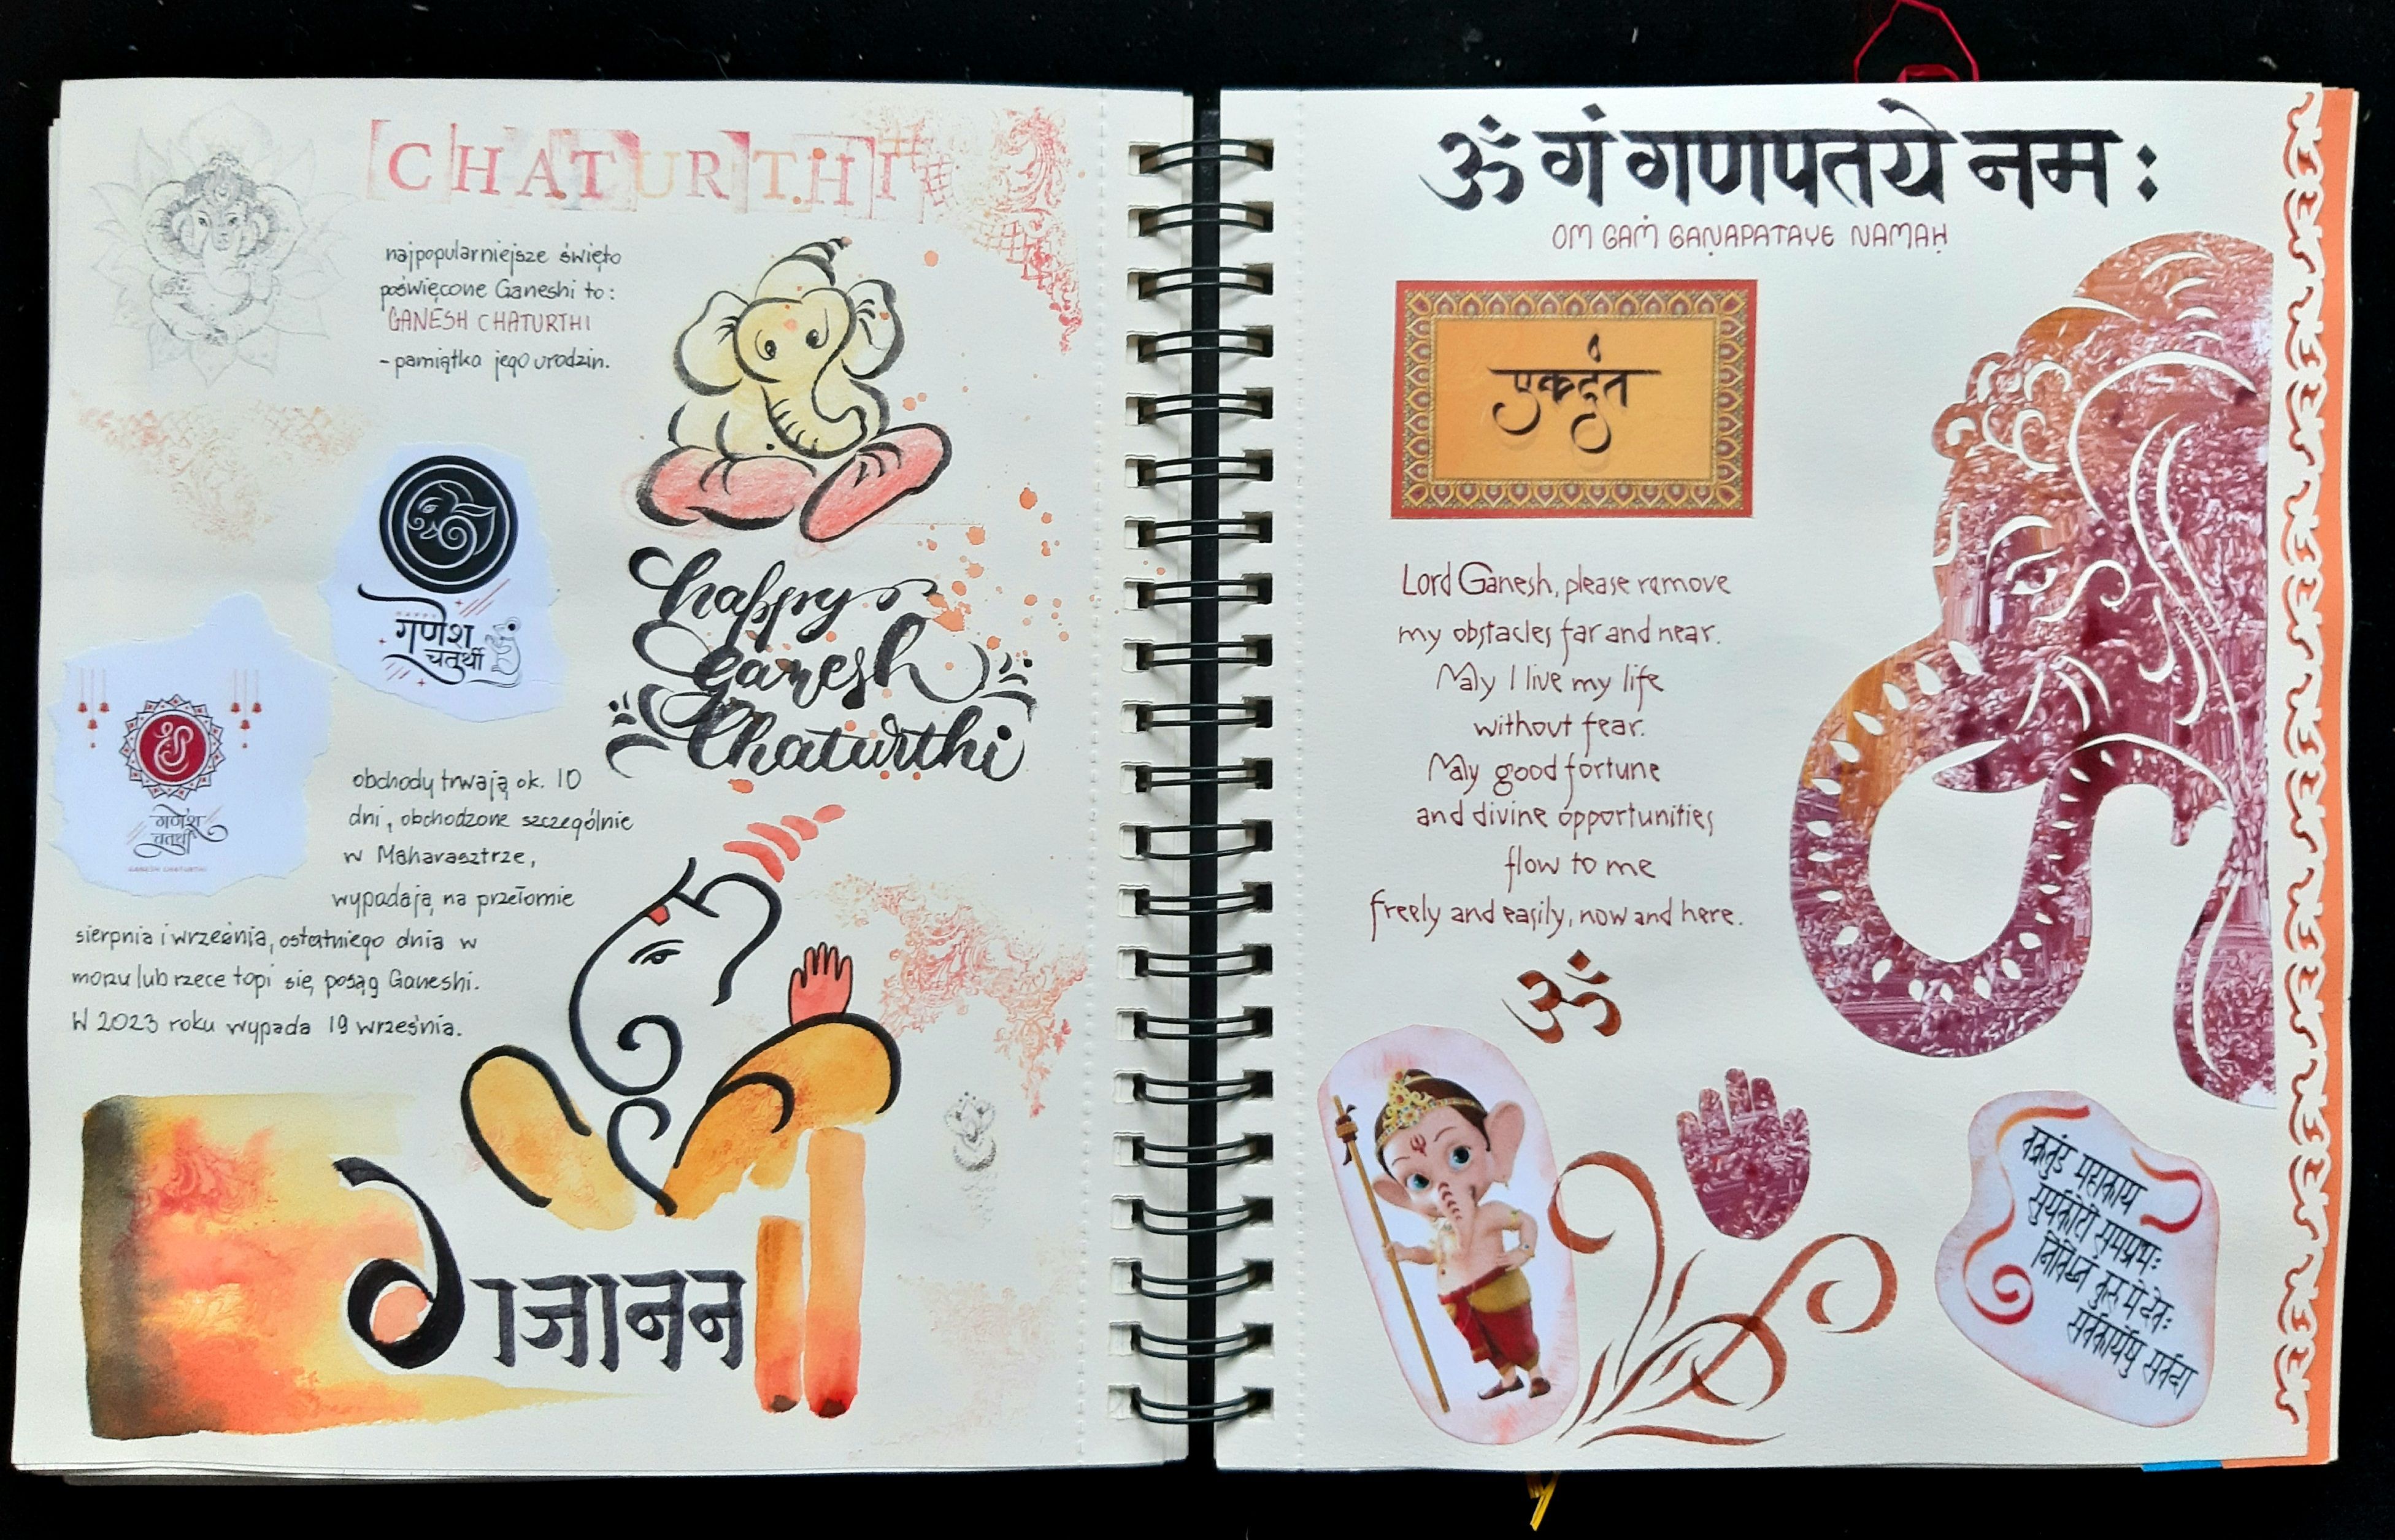 CHATURTHI
najpopularniejsze święto
poświęcone Ganeshi to:
GANESH CHATURTHI
- pamiątka jego urodzin.
गणेश
चतुर्थी
happy
Ganesh
Chaturthi
गणेश
चतुर्थी
GANESH CHATURTHI
obchody trwają ok. 10
dni, obchodzone szczególnie
w Maharasztrze,
wypadają na przełomie
sierpnia i września, ostatniego dnia w
morzu lub rzece topi się posąg Ganeshi.
W 2023 roku wypada 19 września.
गजानन
ॐ गं गणपतये नमः
OM GAṀ GAṆAPATAYE NAMAḤ
एकदंत
Lord Ganesh, please remove
my obstacles far and near.
May I live my life
without fear.
May good fortune
and divine opportunities
flow to me
freely and easily, now and here.
ॐ
वक्रतुंड महाकाय
सुर्यकोटी समप्रभः
निर्विघ्नं कुरु मे देवः
सर्वकार्येषु सर्वदा